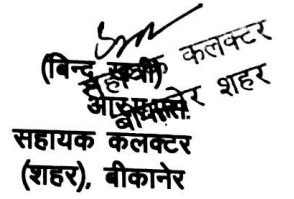 (बिन्दु खत्री)
आर.ए.एस.
सहायक कलक्टर
(शहर), बीकानेर
सहायक कलक्टर
बीकानेर शहर